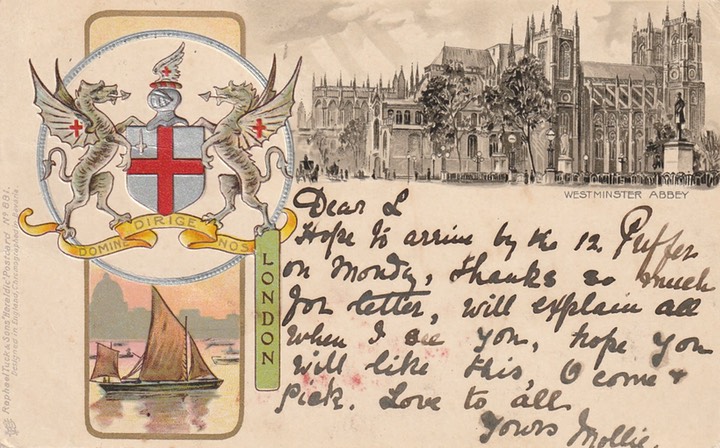 DOMINE DIRIGE NOS
WESTMINSTER ABBEY
LONDON
Raphael Tuck & Sons "Heraldic" Postcard No 891.
Designed in England, Chromographed in Bavaria.
Dear L
Hope to arrive by the 12 Puffer
on Monday, thanks so much
for letter, will explain all
when I see you, hope you
will like this, O come &
pick. Love to all
Yours Mollie.